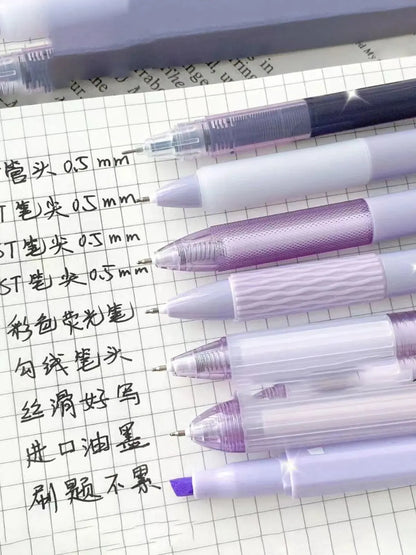 管头 0.5mm
ST 笔尖 0.5mm
ST 笔尖 0.5mm
ST 笔尖 0.5mm
彩色荧光笔
勾线笔头
丝滑好写
进口油墨
刷题不累